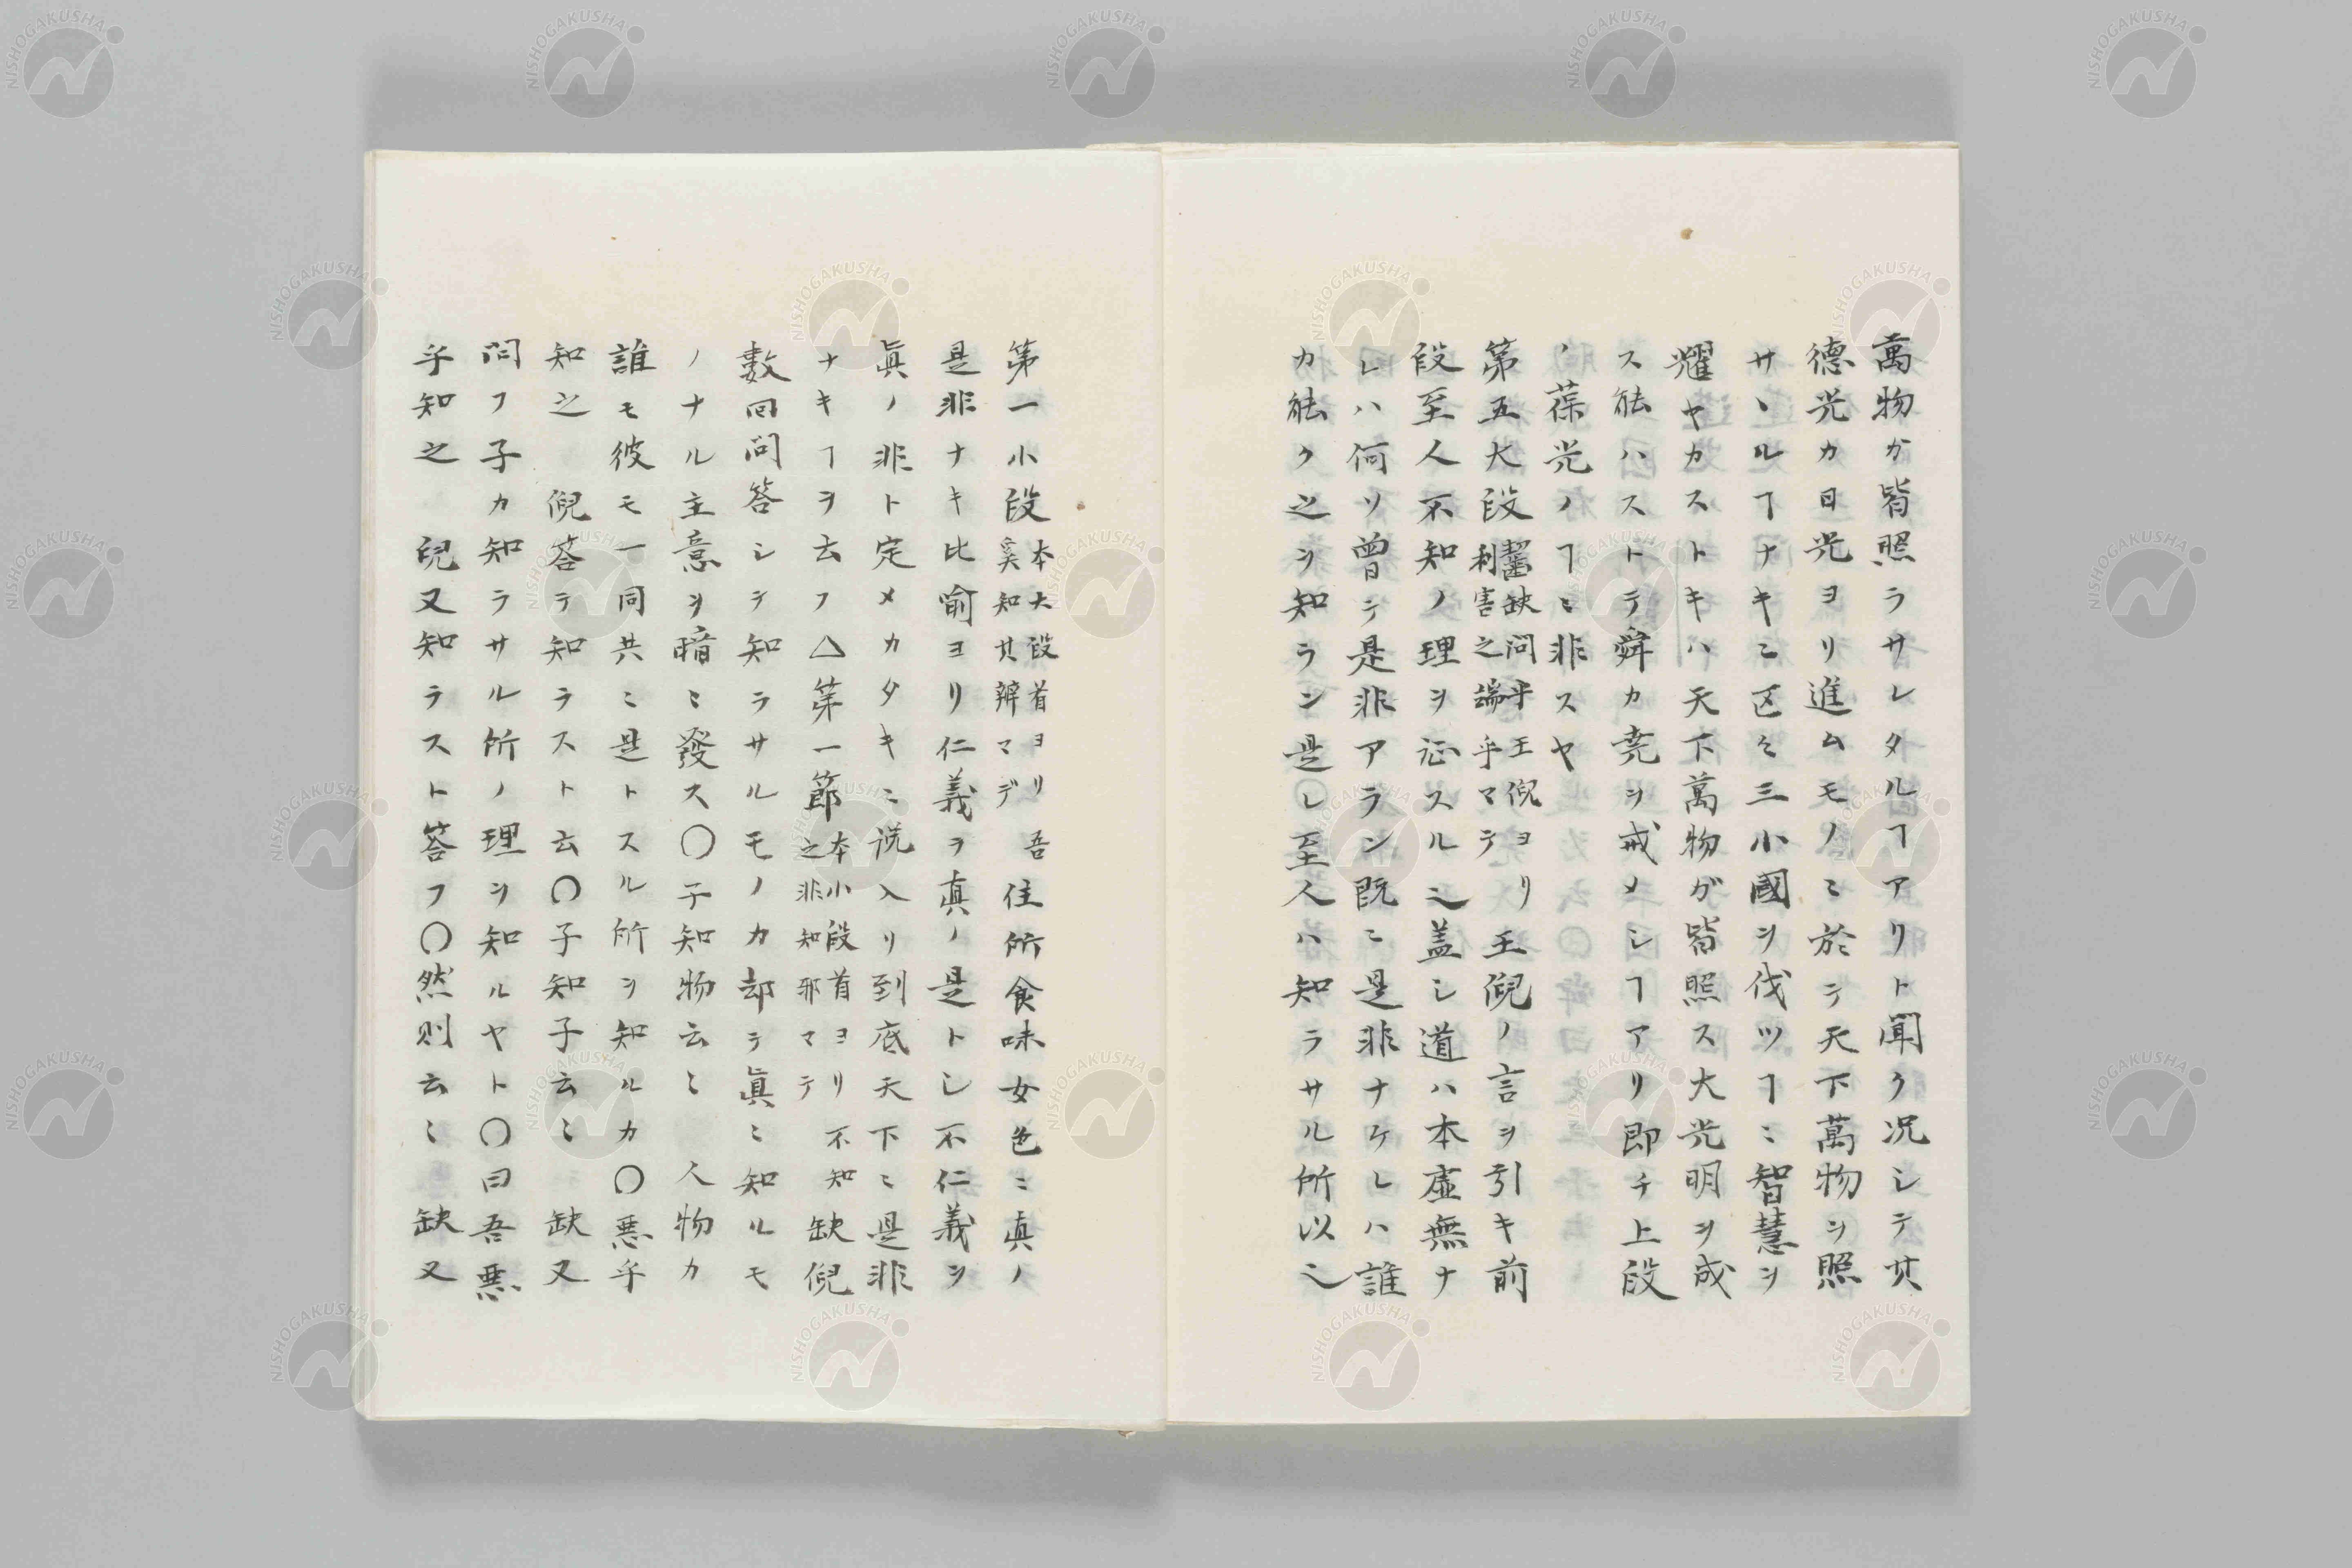 萬物カ皆照ラサレタルヿアリト聞ク况シテ其
德光カ日光ヨリ進ムモノニ於テ天下萬物ヲ照
サヽルヿナキニ区々三小國ヲ伐ツヿニ智慧ヲ
耀ヤカストキハ天下萬物ガ皆照ス大光明ヲ成
ス能ハストテ舜カ尭ヲ戒メシヿアリ即チ上段
ノ葆光ノヿニ非スヤ
第五大段齧缺問乎王倪ヨリ利害之端乎マテ王倪ノ言ヲ引キ前
段至人不知ノ理ヲ证スル之盖シ道ハ本虚無ナ
レハ何ソ曽テ是非アラン既ニ是非ナケレハ誰
カ能ク之ヲ知ラン是レ至人ハ知ラサル所以之
第一小段本大段首ヨリ奚知其辨マデ吾住所食味女色ニ真ノ
是非ナキ比喻ヨリ仁義ヲ真ノ是トシ不仁義ヲ
眞ノ非ト定メカタキニ説入リ到底天下ニ是非
ナキヿヲ去フ△第一節本小段首ヨリ之非知邪マテ不知缺倪
數回问答シテ知ラサルモノカ却テ眞ニ知ルモ
ノナル主意ヲ暗ニ發ス〇子知物云〻人物カ
誰モ彼モ一同共ニ是トスル所ヲ知ルカ〇悪乎
知之倪荅テ知ラスト云〇子知子云〻缺又
问フ子カ知ラサル所ノ理ヲ知ルヤト〇曰吾悪
乎知之兒又知ラスト荅フ〇然则云〻缺又
NISHOGAKUSHA